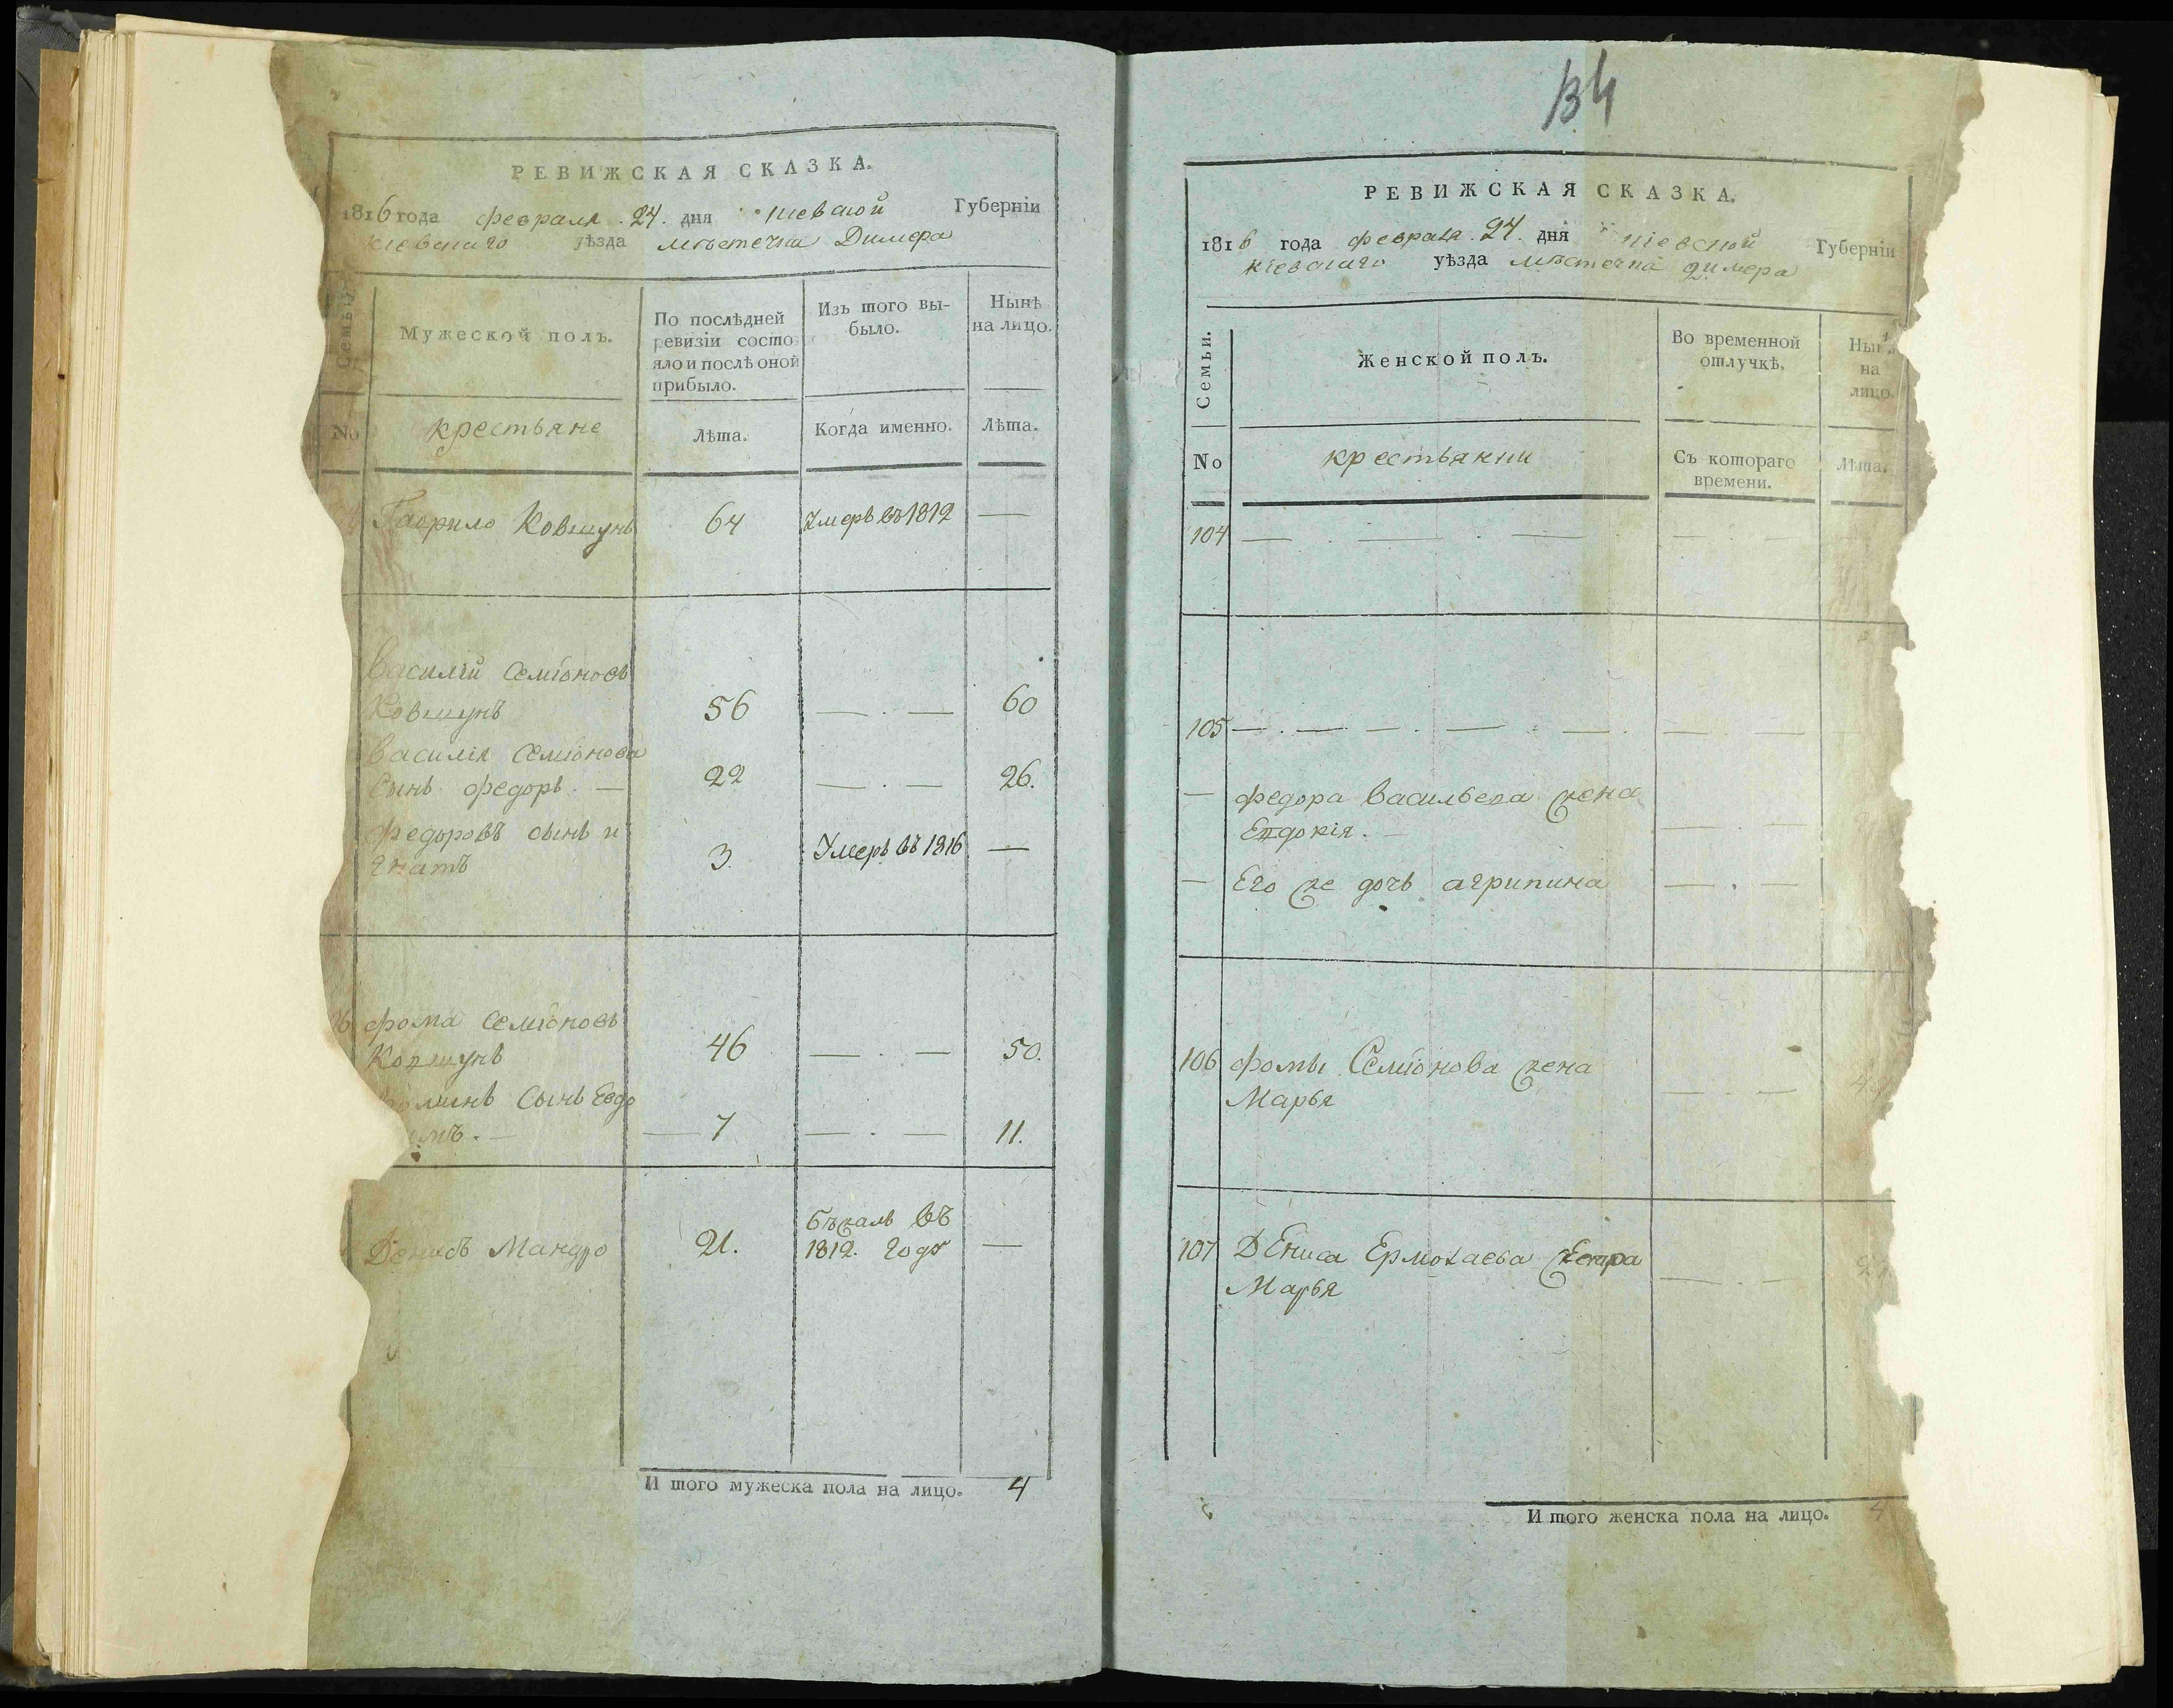 РЕВИЖСКАЯ СКАЗКА.
1816 года февраля 24. дня Киевской Губерніи
Киевскаго уѣзда мѣстечка Димера
Семьи.
Мужеской полъ.
По послѣдней ревизіи состояло и послѣ оной прибыло.
Изъ того выбыло.
Нынѣ на лицо.
No
крестьяне
Лѣта.
Когда именно.
Лѣта.
Гаврило Ковшунъ 64 Умеръ въ 1812 —
Василий Семіоновъ
Ковшунъ 56 — . — 60
Василія Семіонова
Сынъ федоръ. — 22 — . — 26.
федоровъ сынъ и
гнатъ 3. Умеръ въ 1816 —
фома Семіоновъ
Ковшунъ 46 — . — 50.
сынъ Евдо
имъ. — — 7 — . — 11.
Денисъ Мандро 21. бѣжалъ въ
1812. годѫ —
И того мужеска пола на лицо. 4
34
РЕВИЖСКАЯ СКАЗКА.
1816 года февраля 24. дня Кіевской Губерніи
Кіевскаго уѣзда мѣстечка димера
Семьи.
Женской полъ.
Во временной отлучкѣ.
на лицо.
No
крестьянки
Съ котораго времени.
Лѣта.
104 — . — . — — . —
105 — . — — . — . — . — — . —
— федора васильева жена
Евдокія. — — . —
— Его же дочь агрипина — . —
106 фомы Семіонова жена
Марья — . —
107 Дениса Ермолаева жена
Марья — . —
И того женска пола на лицо. 4